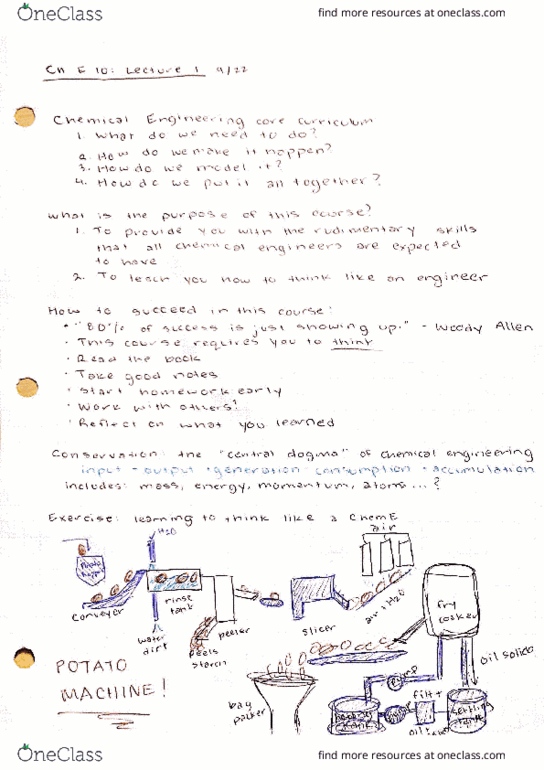 OneClass
find more resources at oneclass.com
Ch E 10: Lecture 1 9/22
Chemical Engineering core curriculum
1. What do we need to do?
2. How do we make it happen?
3. How do we model it?
4. How do we put it all together?
What is the purpose of this course?
1. To provide you with the rudimentary skills
that all chemical engineers are expected
to have
2. To teach you how to think like an engineer
How to succeed in this course:
• "80% of success is just showing up." - Woody Allen
• This course requires you to think
• Read the book
• Take good notes
• Start homework early
• Work with others!
• Reflect on what you learned
Conservation: the "central dogma" of chemical engineering
input - output + generation - consumption = accumulation
includes: mass, energy, momentum, atoms ... ?
Exercise: learning to think like a ChemE
H2O
air
conveyer
rinse tank
water dirt
peels starch
peeler
slicer
air + H2O
fry cooker
oil solids
POTATO
MACHINE!
bag packer
pump
settling tank
OneClass
find more resources at oneclass.com